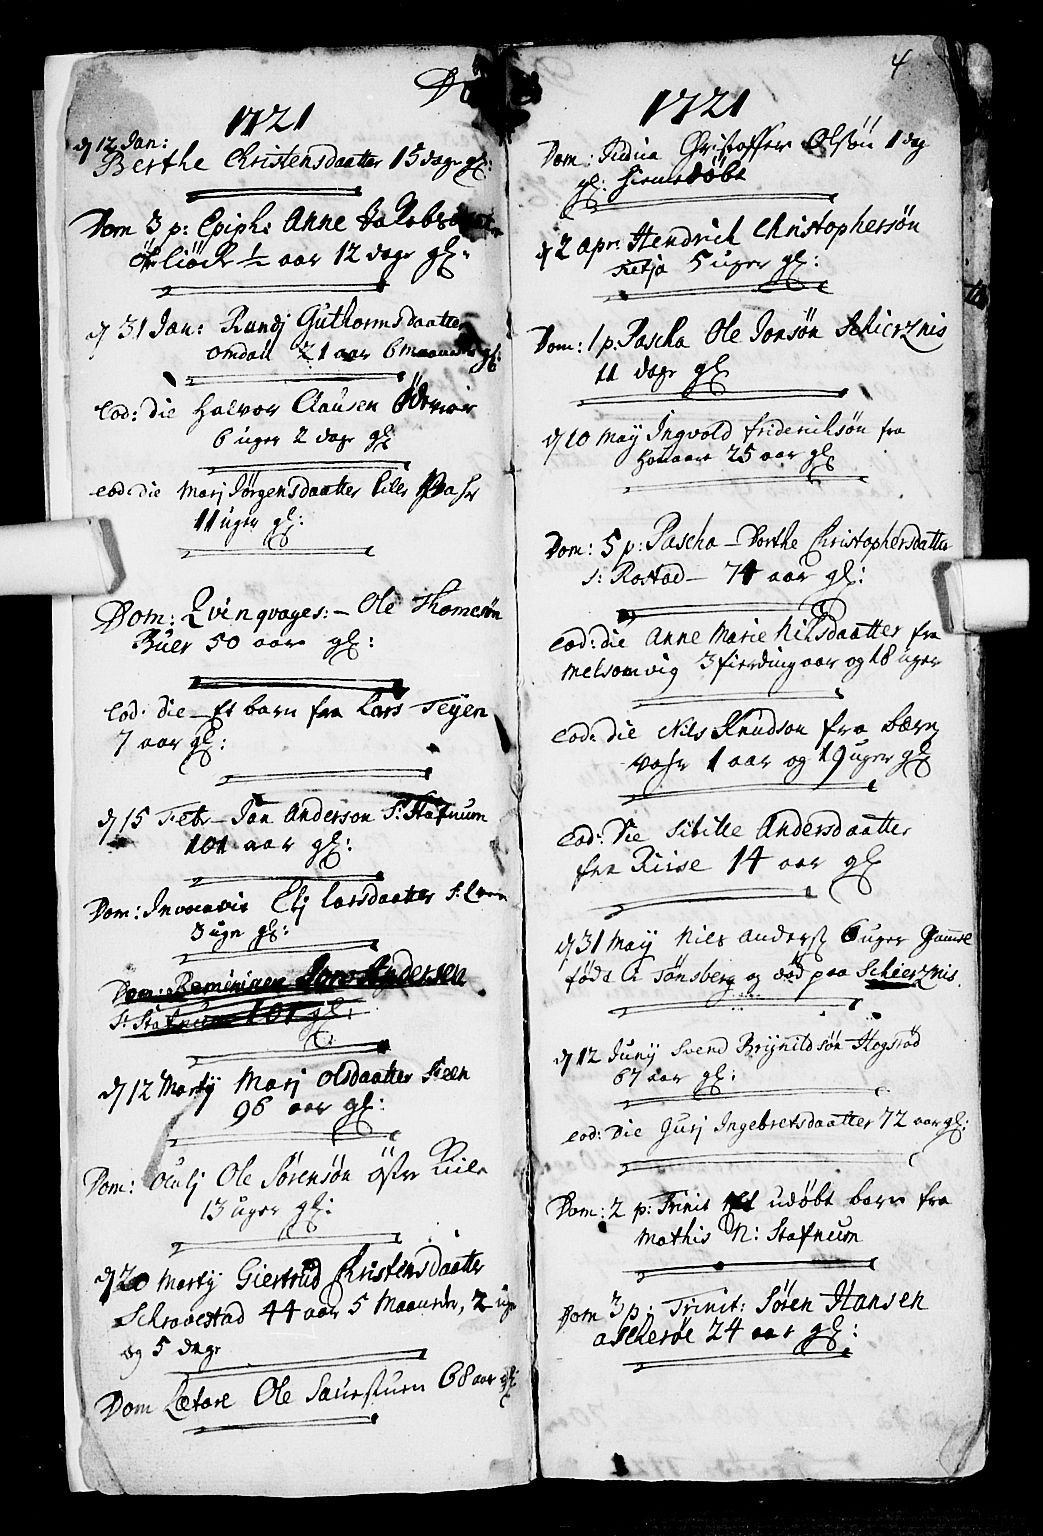 1721
d 12 Jan:
Berthe Christensdaatter 15 dage gl:
Dom 3 p: Epiph: Anne Jakobs
1/2 aar 12 dage gl:
d 31 Jan: Rundj Guthormsdaatter
omdall 21 aar 6 maaneder gl:
Eod: die Halvor Clausen
6 uger 2 dage gl
eod: die Marj Jørgensdaatter
11 uger gl:
Dom: Qvinqvages: - Ole Thomesøn
Buer 50 aar gl:
Eod: die - Et barn fra Lars Feyen
7 aar gl:
d 15 Febr - Jan Anderson S: Stafnum
101 aar gl:
Dom: Invocavit Elj Larsdaatter S:
3 uge gl:
Dom: Reminiscere Jan Andersen
S: Stafnum 101 gl:
d 12 Marty Marj Olsdaatter Feen
96 aar gl:
Dom: Oculj Ole Sørensøn Østre
13 uger gl:
d 20 Marty Giertrud Christensdaatter
Schravestad 44 aar 5 Maaneder, 2 uge
og 5 dage
Dom Lætare Ole 68 aar gl
4
1721
Dom: Judica Christoffer Olsøn 1 dag
gl: hiemedøbt
d 2 apr: Hendrich Christophersøn
5 uger gl:
Dom: 1 p: Pascha Ole Jonsøn Schierznis
11 dage gl
d 10 May Ingvold Friderichsøn fra
25 aar gl
Dom: 5 p: Pascha - Dorthe Christophersdatter
S: Rostad - 74 aar gl:
eod: die Anne Marie Nilsdaatter fra
Melsomvig 3 fierding aar og 18 uger
eod: die Nils Knudson fra
1 aar og 19 uger gl
Eod: Die Sibille Andersdaatter
fra 14 aar gl
d 31 May Nils Anders 6 uger gamel
fød i Tønsberg og død paa Schierznis.
d 12 Juny Svend Brynildsøn Hogsrød
67 aar gl:
Eod: Die Gurj Ingebretsdaatter 72 aar gl:
Dom: 2 p: Trinit et udøbt barn fra
Mathis N: Stafnum
Dom 3 p: Trinit: Søren Hansen
24 aar gl: